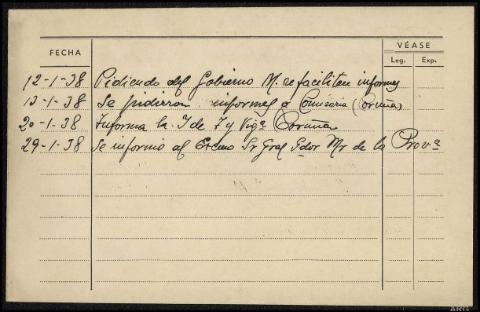 FECHA
VÉASE
Leg. Exp.
12-1-38 Pidiendo del Gobierno M. se faciliten informes
13-1-38 Se pidieron informes a Comisaria (Coruña)
20-1-38 Informa la J de I y Vigª Coruña
29-1-38 Se informó al Excmo Sr Gral Gdor Mr de la Provª
ARG